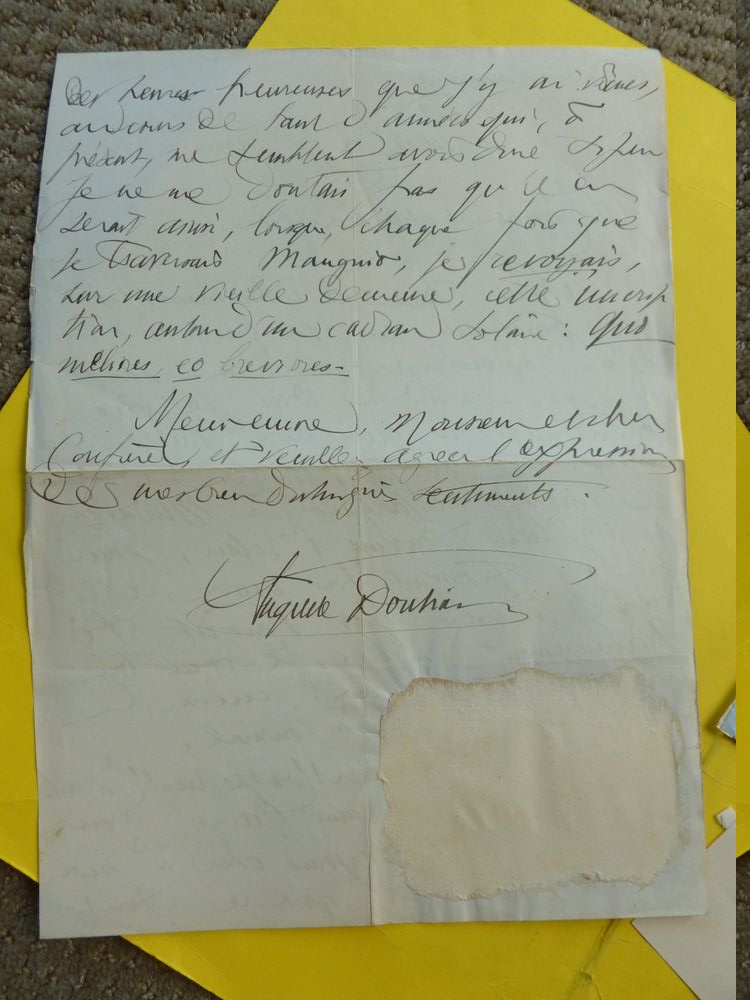 Des heures heureuses que j'y ai vécues,
au cours de tant d'années qui, à
présent, me semblent avoir duré si peu
Je ne me doutais pas qu'il en
serait ainsi, lorsque, chaque fois que
je traversais Mauguio, je revoyais,
sur une vieille demeure, cette inscrip
tion, autour d'un cadran solaire : quo
meliores, eo breviores -
Monsieur et cher
Confrère, et veuillez agréer l'expression
de mes bien distingués sentiments.